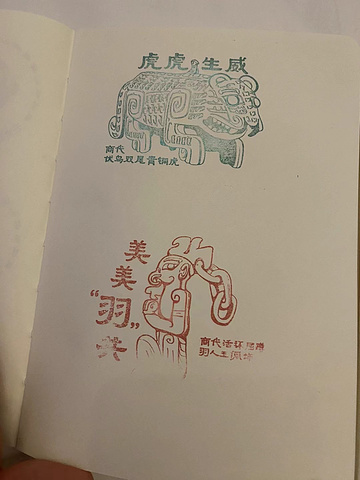 虎虎生威
商代
伏鸟双尾青铜虎
美
美
“羽”
共
商代活环屈蹲
羽人玉佩饰